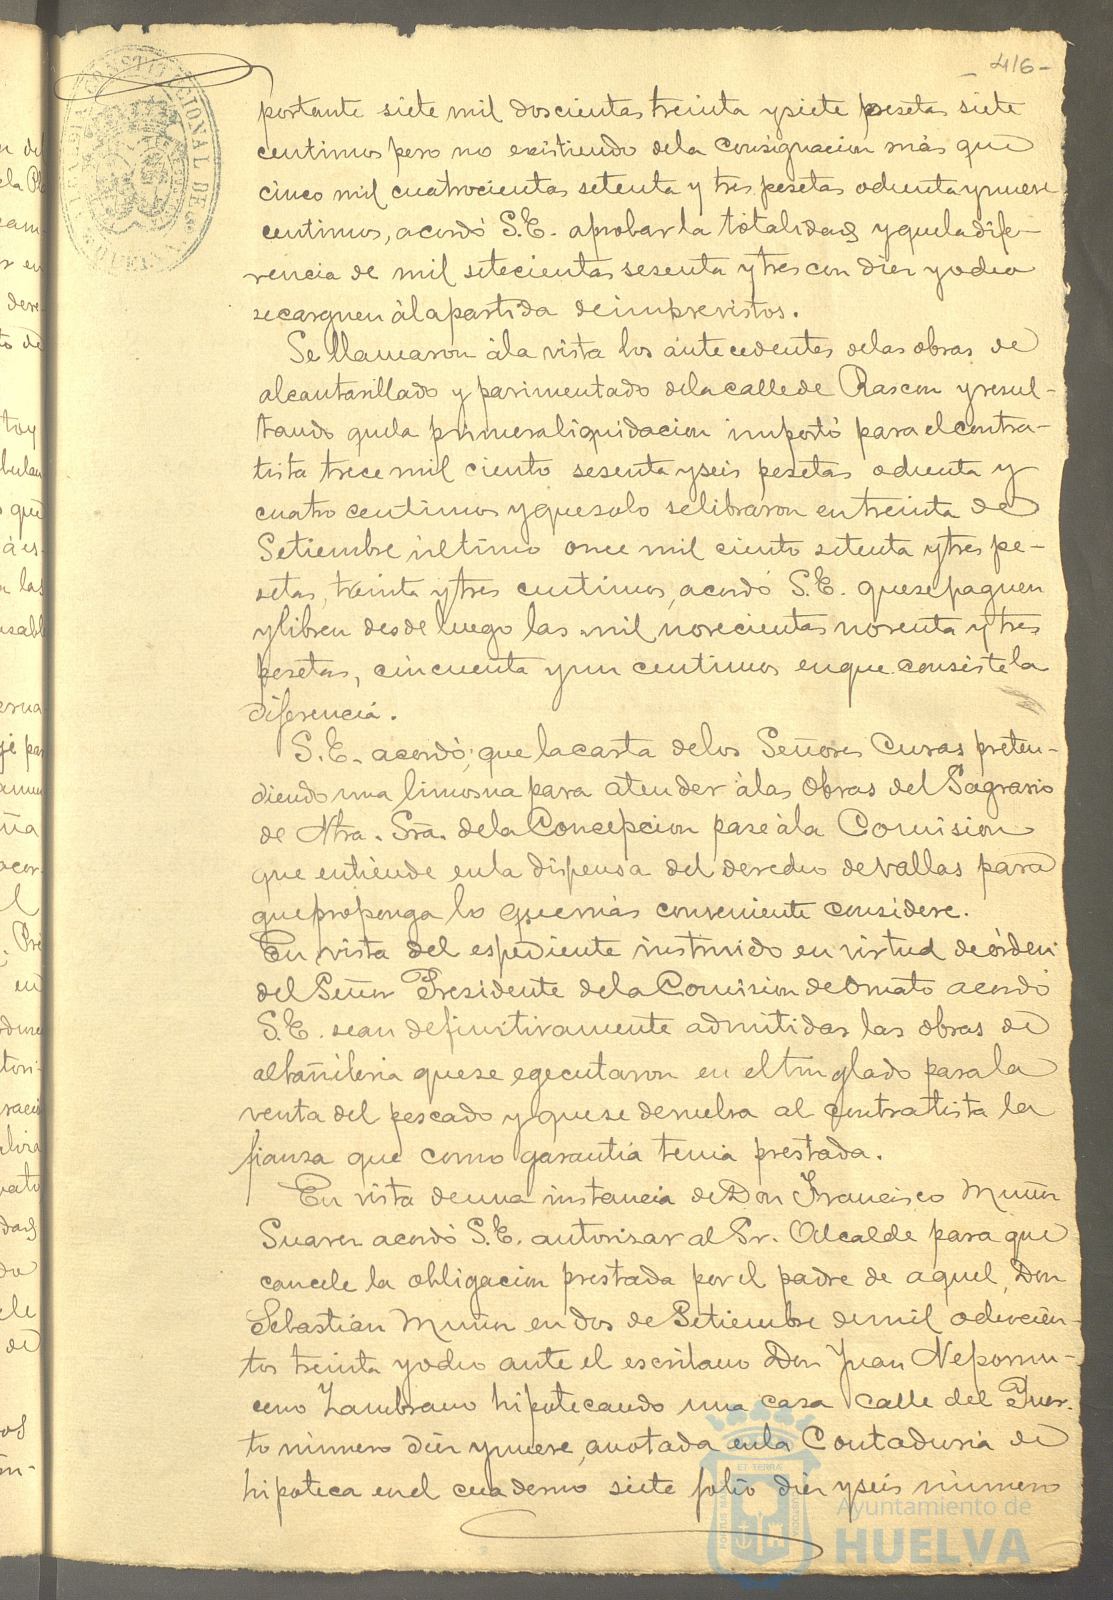 -416-
portante siete mil doscientas treinta y siete pesetas siete
centimos pero no existiendo de la consignacion más que
cinco mil cuatrocientas setenta y tres pesetas ochenta y nueve
centimos, acordó S.E. aprobar la totalidad y que la dife-
rencia de mil setecientas sesenta y tres con diez y ocho
se carguen á la partida de imprevistos.
Se llamaron á la vista los antecedentes de las obras de
alcantarillado y pavimentado de la calle de Rascon y resul-
tando que la primera liquidacion importó para el contra-
tista trece mil ciento sesenta y seis pesetas ochenta y
cuatro centimos y que solo se libraron en treinta de
Setiembre último once mil ciento setenta y tres pe-
setas, treinta y tres centimos, acordó S.E. que se paguen
y libren desde luego las mil novecientas noventa y tres
pesetas, cincuenta y un centimos en que consiste la
diferencia.
S.E. acordó, que la carta de los Señores Curas preten-
diendo una limosna para atender á las Obras del Sagrario
de Ntra. Sra. de la Concepcion pase á la Comision
que entiende en la dispensa del derecho de vallas para
que proponga lo que más conveniente considere.
En vista del espediente instruido en virtud de órden
del Señor Presidente de la Comision de Ornato acordó
S.E. sean definitivamente admitidas las obras de
albañileria que se egecutaron en el tinglado para la
venta del pescado y que se devuelva al contratista la
fianza que como garantia tenia prestada.
En vista de una instancia de Don Francisco Muñoz
Suarez acordó S.E. autorizar al Sr. Alcalde para que
cancele la obligacion prestada por el padre de aquel, Don
Sebastián Muñoz en dos de Setiembre de mil ochocien-
tos treinta y ocho ante el escribano Don Juan Nepomu-
ceno Zambrano hipotecando una casa calle del Puer-
to número diez y nueve, anotada en la Contaduria de
hipoteca en el cuaderno siete folio diez y seis número
Ayuntamiento de
HUELVA